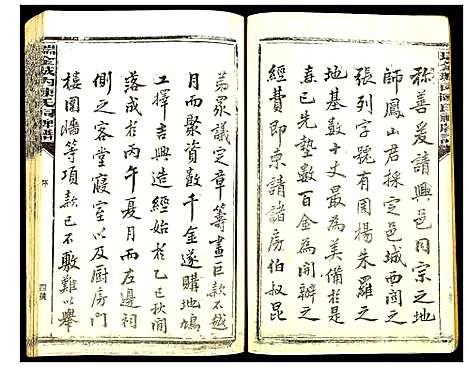 稱善爰請興邑同宗之地
師鳳山君採定邑城西門之
張列字號有園楊朱羅之
地基數十丈最為美備於是
春已先墊數百金為開辦之
經費即東請諸房伯叔昆
弟眾議定章籌畫巨款不越
月而聚資數千金遂購地鳩
工擇吉興造經始於乙巳秋間
落成於丙午夏月而左邊祠
側之客堂寢室以及厨房門
樓圍牆等項款已不敷難以舉
瑞金城內陳氏祠牌譜
序